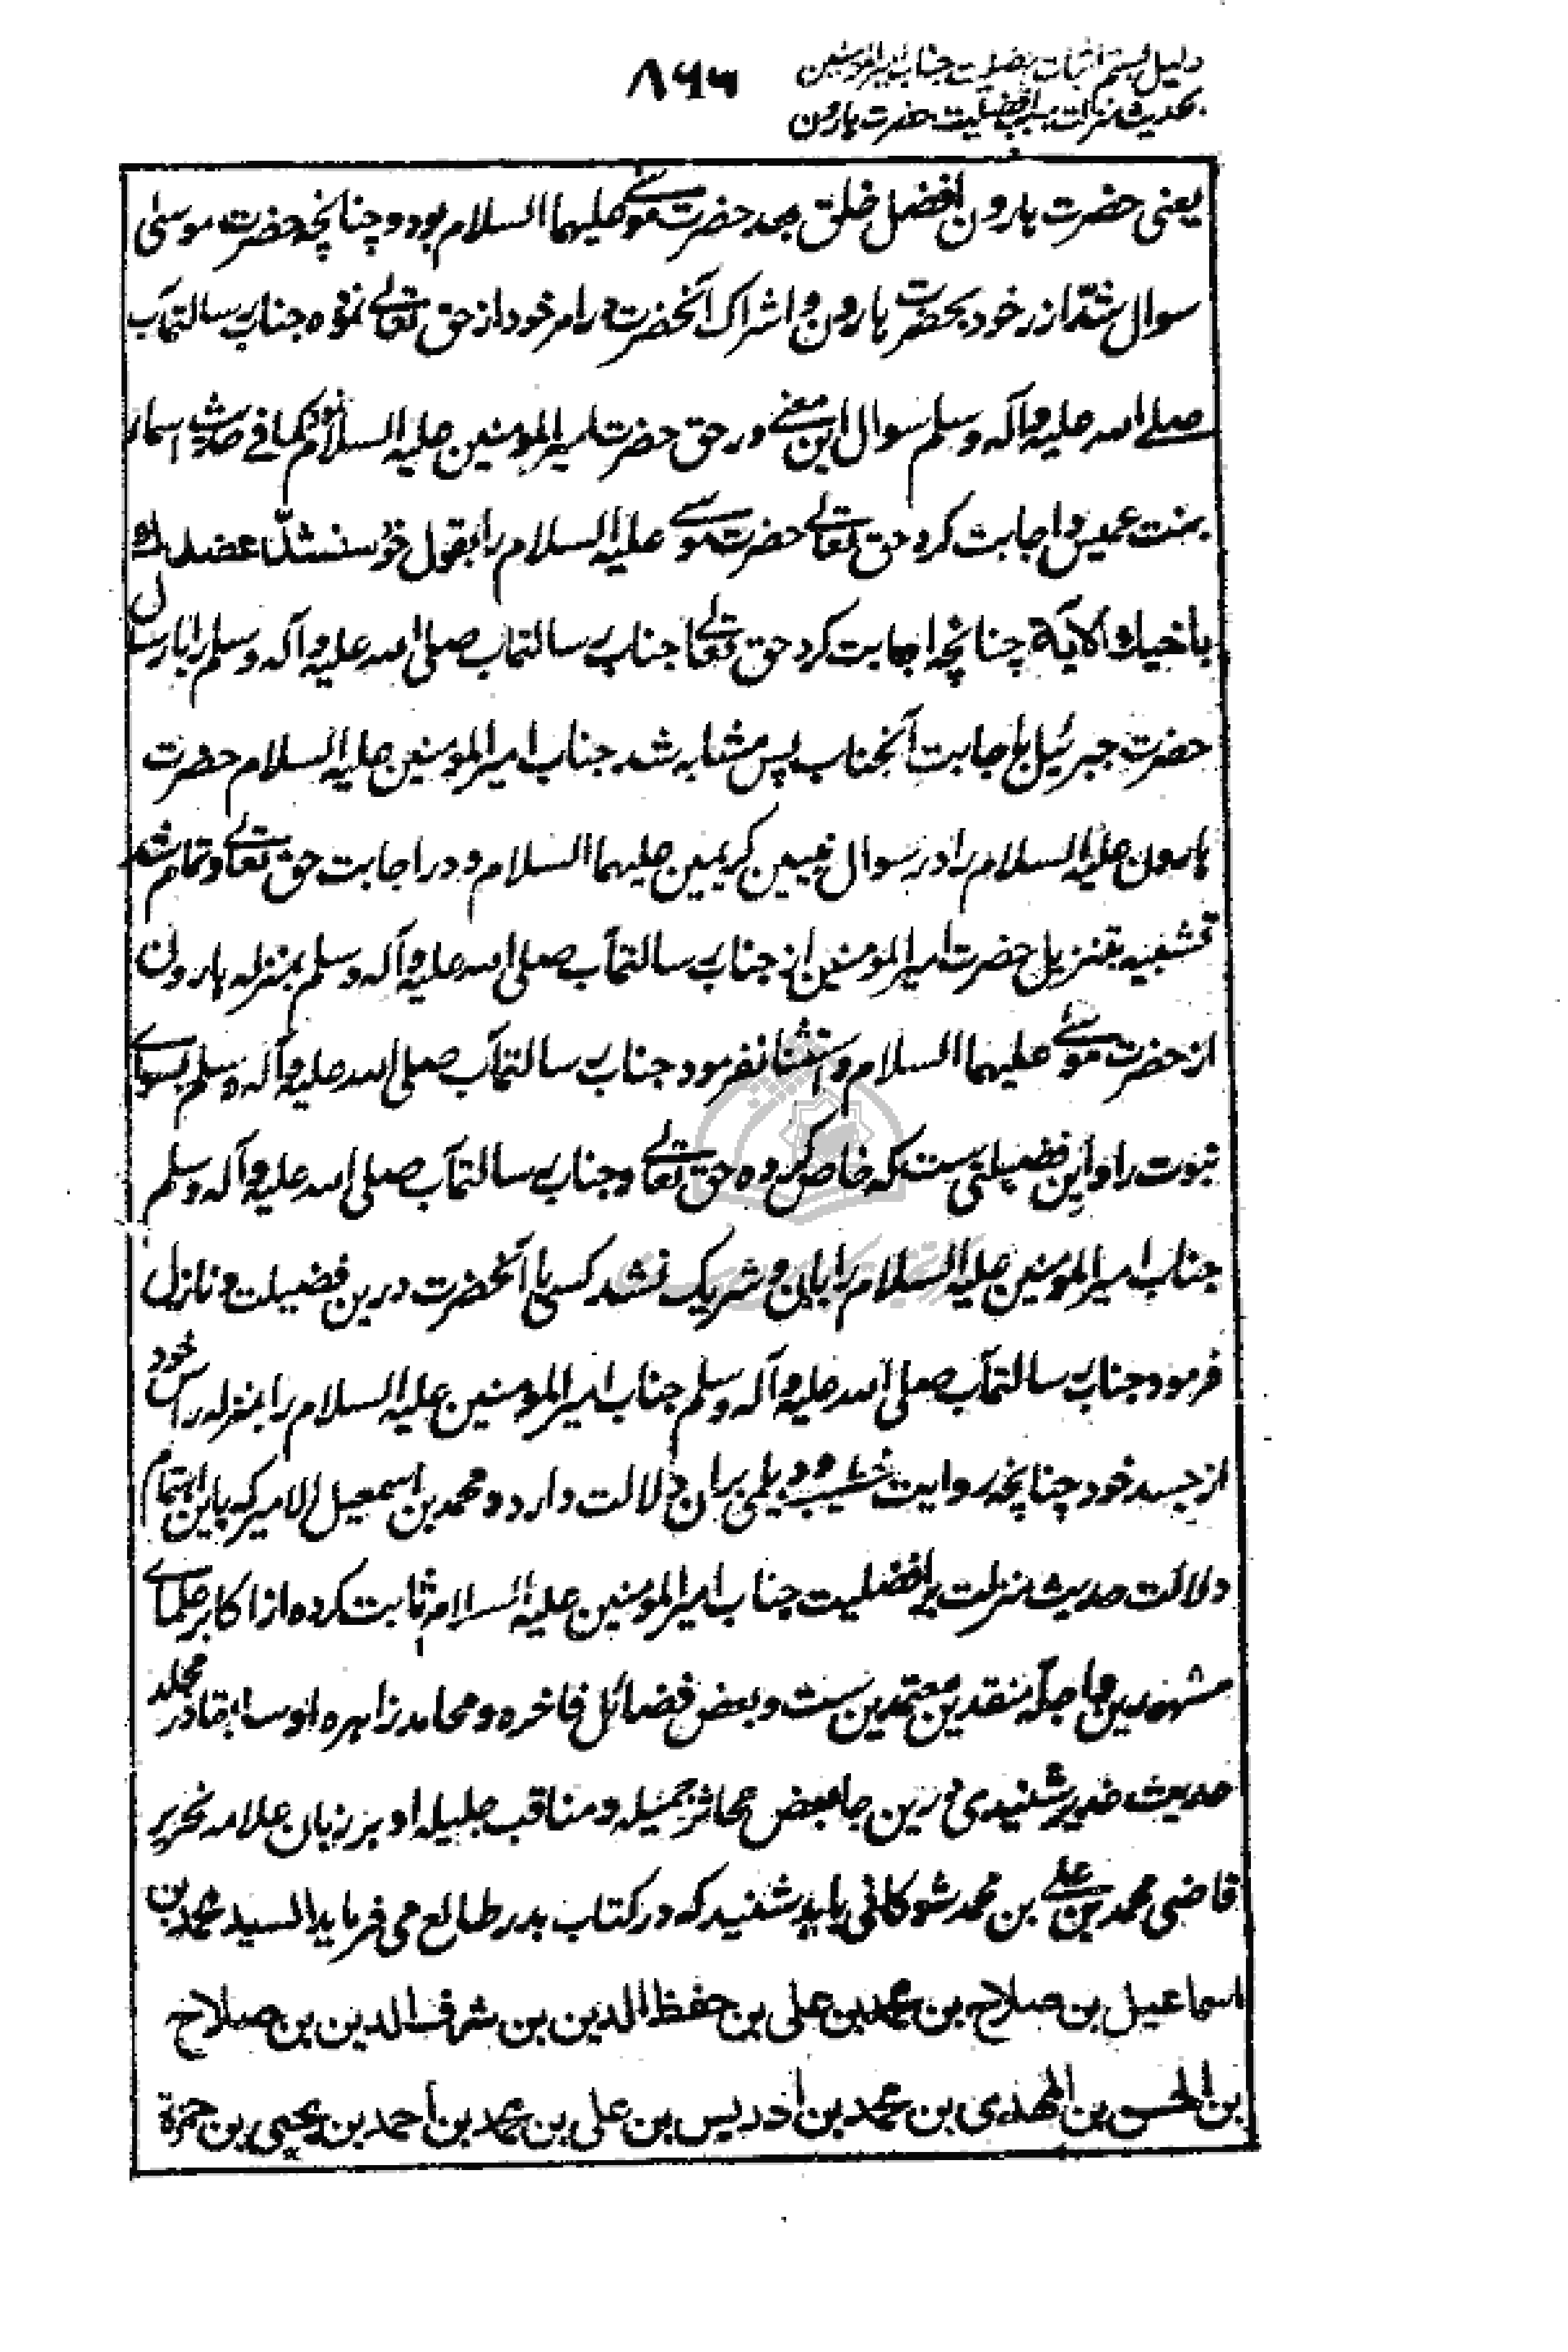 دلیل بستم اثبات افضلیت جناب امیرالمومنین
بحدیث منزلت بسبب افضلیت حضرت هارون
۸۶۶
یعنی حضرت هارون افضل خلق بعد حضرت موسے علیهما السلام بود و چنانچه حضرت موسیٰ
سوال شدّ ازر خود بحضرت هارون و اشراک آنحضرت در امر خود از حق تعالے نموده جناب رسالتمآب
صلے الله علیه وآله وسلم سوال این معنے در حق حضرت امیرالمومنین علیه السلام نموده کما فے حدیث اسماء
بنت عمیس و اجابت کرد حق تعالے حضرت موسے علیه السلام را بقول خود سنشدّ عضدك
باخیك الآیة چنانچه اجابت کرد حق تعالے جناب رسالتمآب صلی الله علیه وآله وسلم را بارسال
حضرت جبرئیل باجابت آنجناب پس مشابه شد جناب امیرالمومنین علیه السلام حضرت
هارون علیه السلام را در سوال نبیین کریمین علیهما السلام و در اجابت حق تعالے و تمام شد
تشبیه بتنزیل حضرت امیرالمومنین از جناب رسالتمآب صلی الله علیه وآله وسلم بمنزله هارون
از حضرت موسے علیهما السلام و استثنا نفرمود جناب رسالتمآب صلی الله علیه وآله وسلم بسواے
نبوت را و این فضیلتی ست که خاص کرده حق تعالے و جناب رسالتمآب صلی الله علیه وآله وسلم
جناب امیرالمومنین علیه السلام را بآن و شریک نشد کسی با آنحضرت درین فضیلت و نازل
فرمود جناب رسالتمآب صلی الله علیه وآله وسلم جناب امیرالمومنین علیه السلام را بمنزله راس خود
از جسد خود چنانچه روایت خطیب و دیلمی بران دلالت دارد و محمد بن اسمعیل الامیر که باین اهتمام
دلالت حدیث منزلت بر افضلیت جناب امیرالمومنین علیه السلام ثابت کرده از اکابر علماے
مشهورین و اجلّه منقدین معتمدین ست و بعض فضائل فاخره و محامد زاهره او سابقا در مجلد
حدیث غدیر شنیدی و درین جا بعض مآثر جمیله و مناقب جلیله او بر زبان علامه نحریر
قاضی محمد بن علے بن محمد شوکانی باید شنید که در کتاب بدر طالع می فرماید السید محمد بن
اسماعیل بن صلاح بن محمد بن علی بن حفظ الدین بن شرف الدین بن صلاح
بن الحسن بن المهدی بن محمد بن ادریس بن علی بن محمد بن أحمد بن یحیی بن حمزة